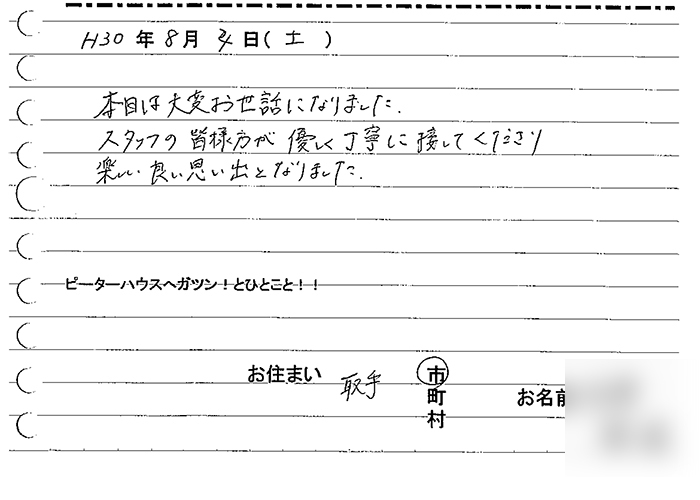 H30年8月4日(土)
本日は大変お世話になりました.
スタッフの皆様方が優しく丁寧に接してくださり
楽しい良い思い出となりました.
ピーターハウスへガツン!とひとこと!!
お住まい 取手 市 お名前
町
村